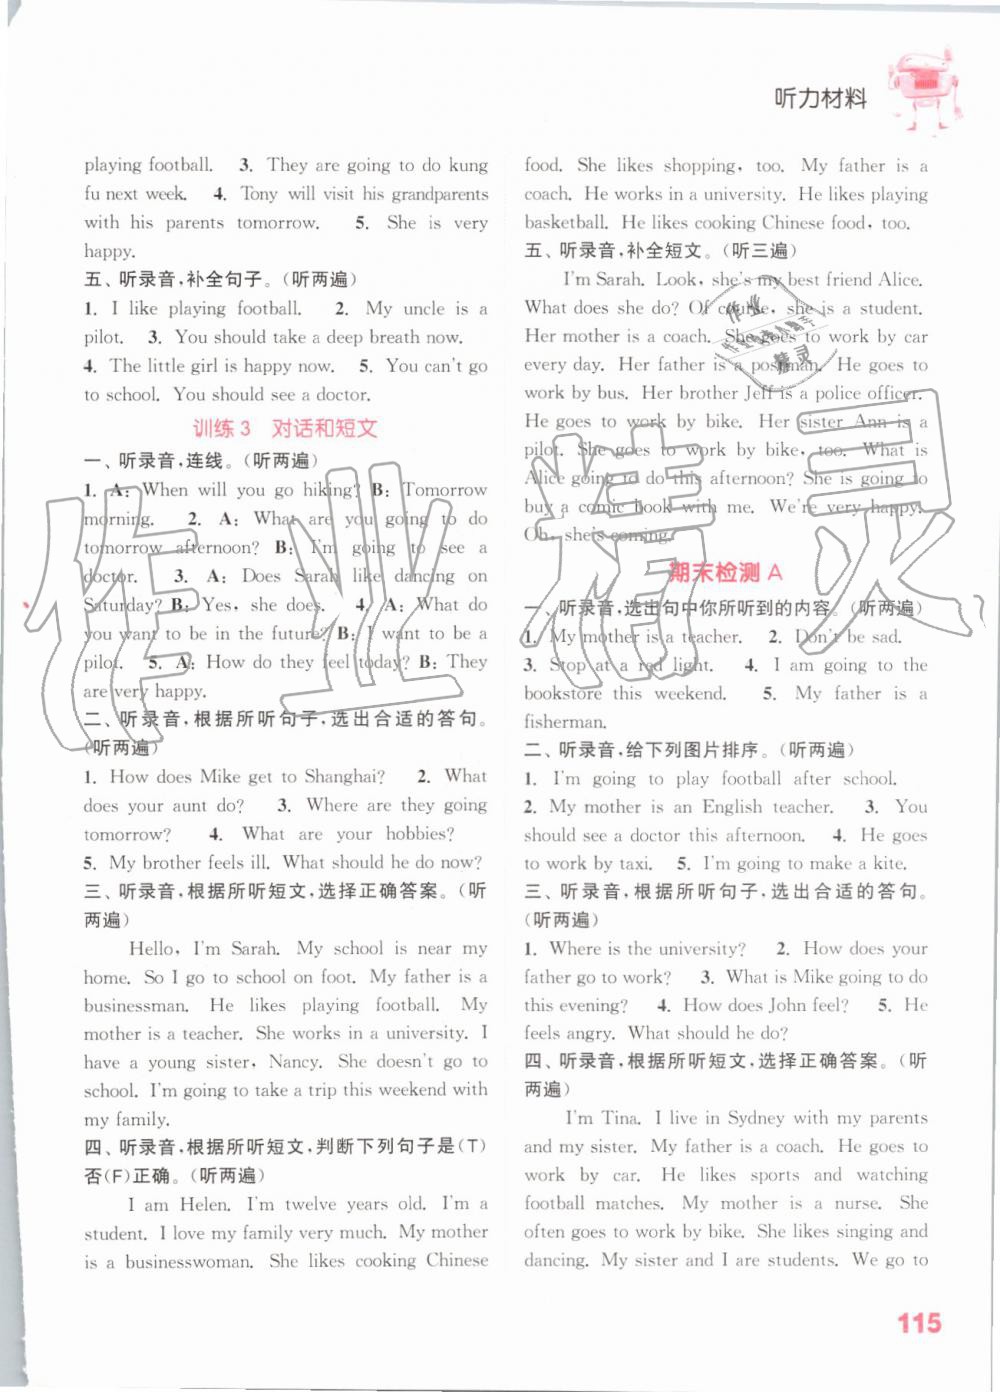 听力材料
playing football. 3. They are going to do kung
fu next week. 4. Tony will visit his grandparents
with his parents tomorrow. 5. She is very
happy.
五、听录音,补全句子。(听两遍)
1. I like playing football. 2. My uncle is a
pilot. 3. You should take a deep breath now.
4. The little girl is happy now. 5. You can't go
to school. You should see a doctor.
训练3 对话和短文
一、听录音,连线。(听两遍)
1. A: When will you go hiking? B: Tomorrow
morning. 2. A: What are you going to do
tomorrow afternoon? B: I'm going to see a
doctor. 3. A: Does Sarah like dancing on
Saturday? B: Yes, she does. 4. A: What do
you want to be in the future? B: I want to be a
pilot. 5. A: How do they feel today? B: They
are very happy.
二、听录音,根据所听句子,选出合适的答句。
(听两遍)
1. How does Mike get to Shanghai? 2. What
does your aunt do? 3. Where are they going
tomorrow? 4. What are your hobbies?
5. My brother feels ill. What should he do now?
三、听录音,根据所听短文,选择正确答案。(听
两遍)
Hello, I'm Sarah. My school is near my
home. So I go to school on foot. My father is a
businessman. He likes playing football. My
mother is a teacher. She works in a university. I
have a young sister, Nancy. She doesn't go to
school. I'm going to take a trip this weekend with
my family.
四、听录音,根据所听短文,判断下列句子是(T)
否(F)正确。(听两遍)
I am Helen. I'm twelve years old. I'm a
student. I love my family very much. My mother
is a businesswoman. She likes cooking Chinese
food. She likes shopping, too. My father is a
coach. He works in a university. He likes playing
basketball. He likes cooking Chinese food, too.
五、听录音,补全短文。(听三遍)
I'm Sarah. Look, she's my best friend Alice.
What does she do? Of course, she is a student.
Her mother is a coach. She goes to work by car
every day. Her father is a postman. He goes to
work by bus. Her brother Jeff is a police officer.
He goes to work by bike. Her sister Ann is a
pilot. She goes to work by bike, too. What is
Alice going to do this afternoon? She is going to
buy a comic book with me. We're very happy.
Oh, she's coming.
期末检测 A
一、听录音,选出句中你所听到的内容。(听两遍)
1. My mother is a teacher. 2. Don't be sad.
3. Stop at a red light. 4. I am going to the
bookstore this weekend. 5. My father is a
fisherman.
二、听录音,给下列图片排序。(听两遍)
1. I'm going to play football after school.
2. My mother is an English teacher. 3. You
should see a doctor this afternoon. 4. He goes
to work by taxi. 5. I'm going to make a kite.
三、听录音,根据所听句子,选出合适的答句。
(听两遍)
1. Where is the university? 2. How does your
father go to work? 3. What is Mike going to do
this evening? 4. How does John feel? 5. He
feels angry. What should he do?
四、听录音,根据所听短文,选择正确答案。(听
两遍)
I'm Tina. I live in Sydney with my parents
and my sister. My father is a coach. He goes to
work by car. He likes sports and watching
football matches. My mother is a nurse. She
often goes to work by bike. She likes singing and
dancing. My sister and I are students. We go to
115
作业精灵